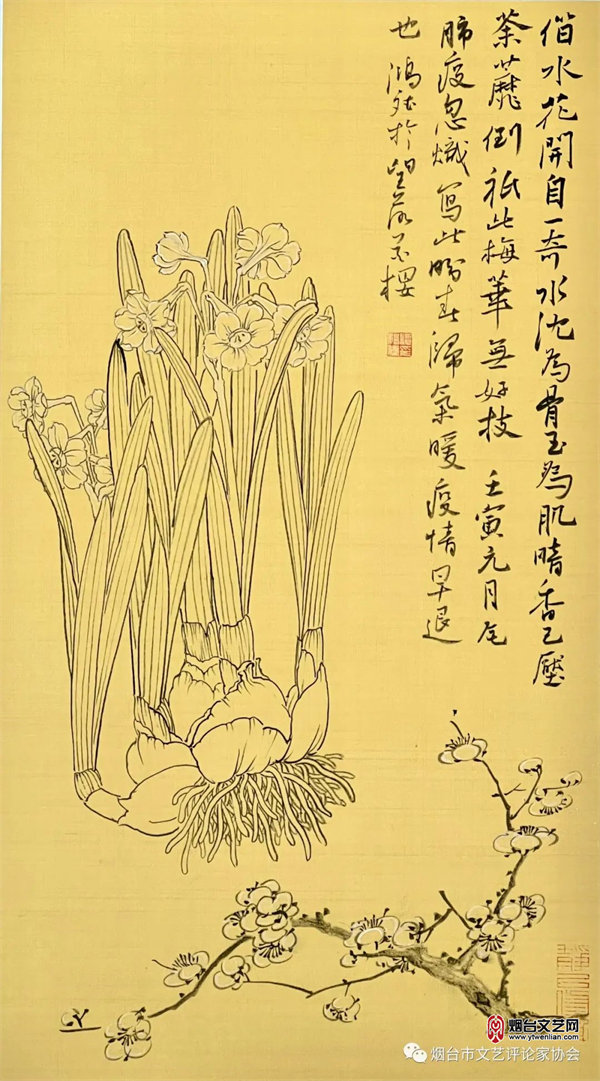 借水花開自一奇水沈為骨玉為肌暗香已壓
荼蘼倒祇比梅華無好枝 壬寅元月尾
肺疫忽熾寫此盼春歸氣暖疫情早退
也 鴻於望樓
烟台文艺网
www.ytwenlian.com
烟台市文艺评论家协会